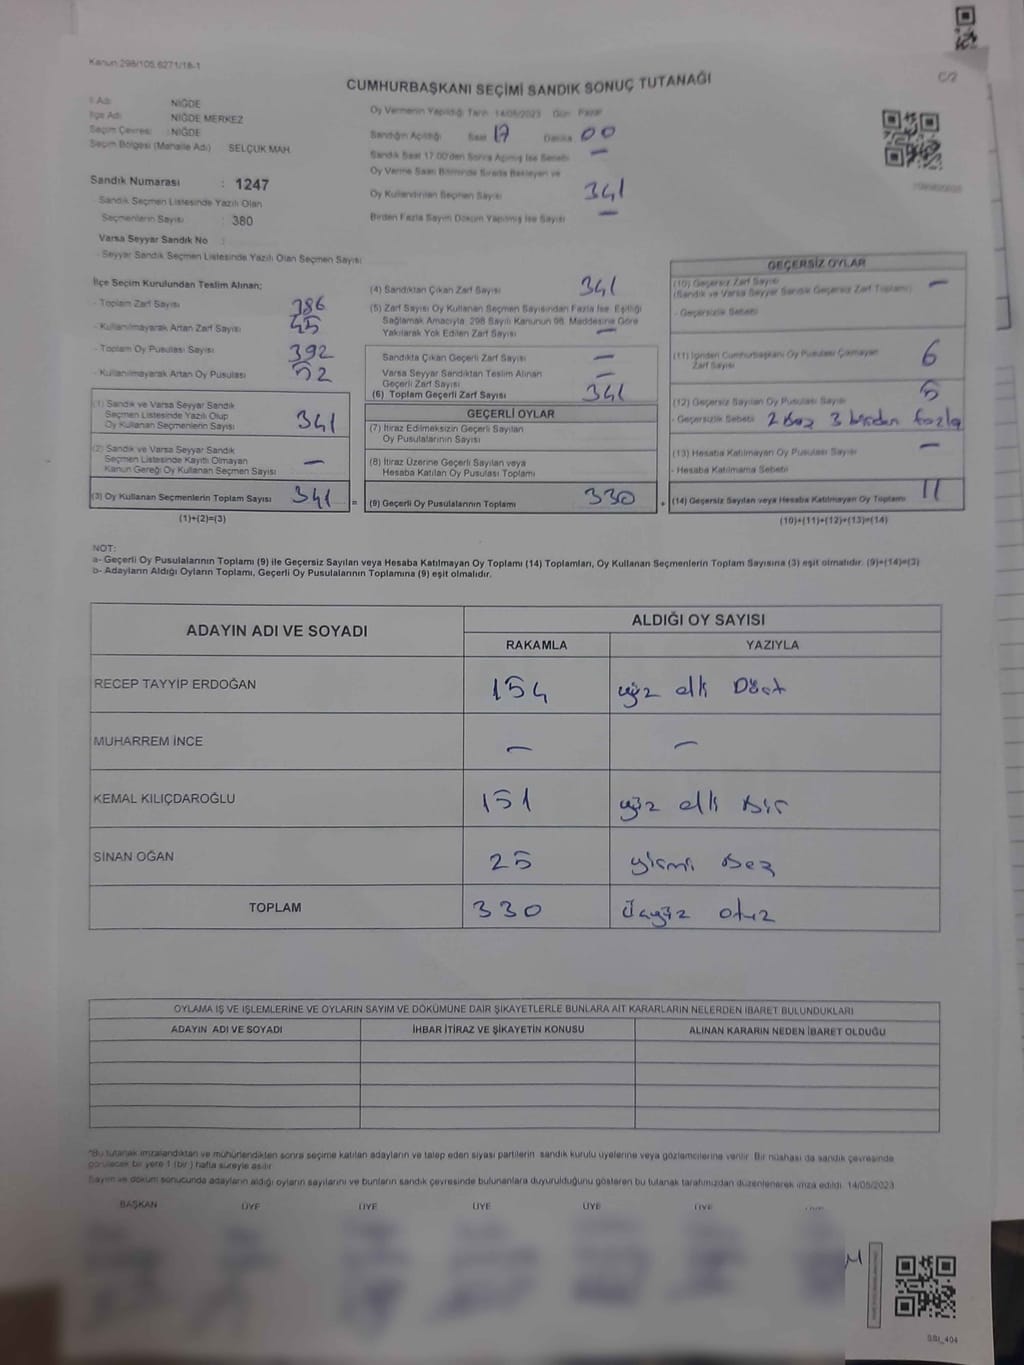 Kanun:298/105,6271/18-1
C/2
CUMHURBAŞKANI SEÇİMİ SANDIK SONUÇ TUTANAĞI
İl Adı NİĞDE
İlçe Adı NİĞDE MERKEZ
Seçim Çevresi : NİĞDE
Seçim Bölgesi (Mahalle Adı) SELÇUK MAH.
Sandık Numarası : 1247
- Sandık Seçmen Listesinde Yazılı Olan
Seçmenlerin Sayısı : 380
Varsa Seyyar Sandık No
- Seyyar Sandık Seçmen Listesinde Yazılı Olan Seçmen Sayısı
Oy Vermenin Yapıldığı Tarih 14/05/2023 Gün Pazar
Sandığın Açıldığı Saat 17 Dakika 00
Sandık Saat 17.00'den Sonra Açılmış İse Sebebi —
Oy Verme Saati Bitiminde Sırada Bekleyen ve
Oy Kullandırılan Seçmen Sayısı 341
Birden Fazla Sayım Döküm Yapılmış İse Sayısı —
İlçe Seçim Kurulundan Teslim Alınan;
- Toplam Zarf Sayısı 386
- Kullanılmayarak Artan Zarf Sayısı 45
- Toplam Oy Pusulası Sayısı 392
- Kullanılmayarak Artan Oy Pusulası 52
(1) Sandık ve Varsa Seyyar Sandık
Seçmen Listesinde Yazılı Olup
Oy Kullanan Seçmenlerin Sayısı 341
(2) Sandık ve Varsa Seyyar Sandık
Seçmen Listesinde Kayıtlı Olmayan
Kanun Gereği Oy Kullanan Seçmen Sayısı —
(3) Oy Kullanan Seçmenlerin Toplam Sayısı 341 =
(1)+(2)=(3)
(4) Sandıktan Çıkan Zarf Sayısı 341
(5) Zarf Sayısı Oy Kullanan Seçmen Sayısından Fazla İse, Eşitliği
Sağlamak Amacıyla, 298 Sayılı Kanunun 98. Maddesine Göre
Yakılarak Yok Edilen Zarf Sayısı —
Sandıkta Çıkan Geçerli Zarf Sayısı —
Varsa Seyyar Sandıktan Teslim Alınan
Geçerli Zarf Sayısı —
(6) Toplam Geçerli Zarf Sayısı 341
GEÇERLİ OYLAR
(7) İtiraz Edilmeksizin Geçerli Sayılan
Oy Pusulalarının Sayısı
(8) İtiraz Üzerine Geçerli Sayılan veya
Hesaba Katılan Oy Pusulası Toplamı
(9) Geçerli Oy Pusulalarının Toplamı 330 +
GEÇERSİZ OYLAR
(10) Geçersiz Zarf Sayısı
(Sandık ve Varsa Seyyar Sandık Geçersiz Zarf Toplamı) —
- Geçersizlik Sebebi
(11) İçinden Cumhurbaşkanı Oy Pusulası Çıkmayan
Zarf Sayısı 6
(12) Geçersiz Sayılan Oy Pusulası Sayısı 5
- Geçersizlik Sebebi 2 Boş 3 birden fazla
(13) Hesaba Katılmayan Oy Pusulası Sayısı —
- Hesaba Katılmama Sebebi
(14) Geçersiz Sayılan veya Hesaba Katılmayan Oy Toplamı 11
(10)+(11)+(12)+(13)=(14)
NOT:
a- Geçerli Oy Pusulalarının Toplamı (9) ile Geçersiz Sayılan veya Hesaba Katılmayan Oy Toplamı (14) Toplamları, Oy Kullanan Seçmenlerin Toplam Sayısına (3) eşit olmalıdır. (9)+(14)=(3)
b- Adayların Aldığı Oyların Toplamı, Geçerli Oy Pusulalarının Toplamına (9) eşit olmalıdır.
ADAYIN ADI VE SOYADI ALDIĞI OY SAYISI
RAKAMLA YAZIYLA
RECEP TAYYİP ERDOĞAN 154 yüz elli Dört
MUHARREM İNCE — —
KEMAL KILIÇDAROĞLU 151 yüz elli bir
SİNAN OĞAN 25 yirmi beş
TOPLAM 330 üçyüz otuz
OYLAMA İŞ VE İŞLEMLERİNE VE OYLARIN SAYIM VE DÖKÜMÜNE DAİR ŞİKAYETLERLE BUNLARA AİT KARARLARIN NELERDEN İBARET BULUNDUKLARI
ADAYIN ADI VE SOYADI İHBAR İTİRAZ VE ŞİKAYETİN KONUSU ALINAN KARARIN NEDEN İBARET OLDUĞU
*Bu tutanak imzalandıktan ve mühürlendikten sonra seçime katılan adayların ve talep eden siyasi partilerin sandık kurulu üyelerine veya gözlemcilerine verilir. Bir nüshası da sandık çevresinde
görülecek bir yere 1 (bir) hafta süreyle asılır.
Sayım ve döküm sonucunda adayların aldığı oyların sayılarını ve bunların sandık çevresinde bulunanlara duyurulduğunu gösteren bu tutanak tarafımızdan düzenlenerek imza edildi. 14/05/2023
BAŞKAN ÜYE ÜYE ÜYE ÜYE ÜYE
SSI_404